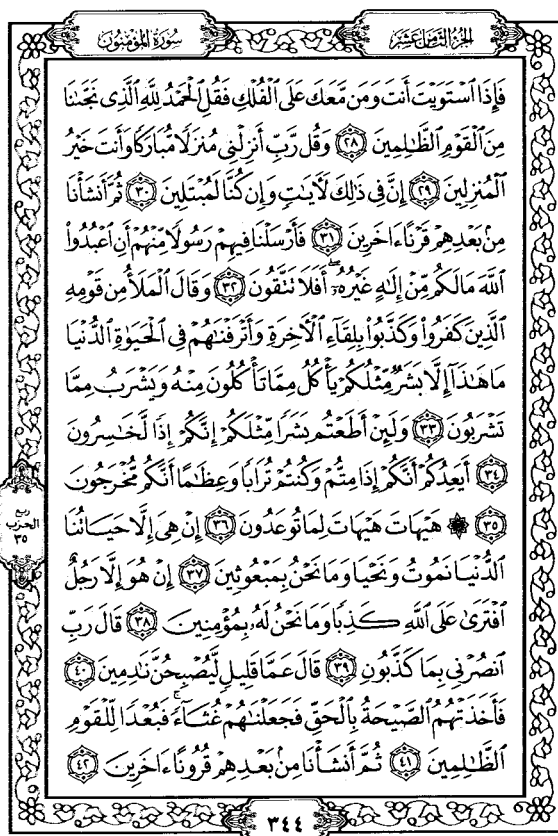 سُورَةُ المُؤْمِنُونَ
الجُزْءُ الثَّامِنَ عَشَرَ
فَإِذَا ٱسْتَوَيْتَ أَنتَ وَمَن مَّعَكَ عَلَى ٱلْفُلْكِ فَقُلِ ٱلْحَمْدُ لِلَّهِ ٱلَّذِى نَجَّىٰنَا
مِنَ ٱلْقَوْمِ ٱلظَّـٰلِمِينَ ٢٨ وَقُل رَّبِّ أَنزِلْنِى مُنزَلًا مُّبَارَكًا وَأَنتَ خَيْرُ
ٱلْمُنزِلِينَ ٢٩ إِنَّ فِى ذَٰلِكَ لَـَٔايَـٰتٍ وَإِن كُنَّا لَمُبْتَلِينَ ٣٠ ثُمَّ أَنشَأْنَا
مِنۢ بَعْدِهِمْ قَرْنًا ءَاخَرِينَ ٣١ فَأَرْسَلْنَا فِيهِمْ رَسُولًا مِّنْهُمْ أَنِ ٱعْبُدُوا۟
ٱللَّهَ مَا لَكُم مِّنْ إِلَـٰهٍ غَيْرُهُۥٓ ۖ أَفَلَا تَتَّقُونَ ٣٢ وَقَالَ ٱلْمَلَأُ مِن قَوْمِهِ
ٱلَّذِينَ كَفَرُوا۟ وَكَذَّبُوا۟ بِلِقَآءِ ٱلْـَٔاخِرَةِ وَأَتْرَفْنَـٰهُمْ فِى ٱلْحَيَوٰةِ ٱلدُّنْيَا
مَا هَـٰذَآ إِلَّا بَشَرٌ مِّثْلُكُمْ يَأْكُلُ مِمَّا تَأْكُلُونَ مِنْهُ وَيَشْرَبُ مِمَّا
تَشْرَبُونَ ٣٣ وَلَئِنْ أَطَعْتُم بَشَرًا مِّثْلَكُمْ إِنَّكُمْ إِذًا لَّخَـٰسِرُونَ
٣٤ أَيَعِدُكُمْ أَنَّكُمْ إِذَا مِتُّمْ وَكُنتُمْ تُرَابًا وَعِظَـٰمًا أَنَّكُم مُّخْرَجُونَ
٣٥ ۞ هَيْهَاتَ هَيْهَاتَ لِمَا تُوعَدُونَ ٣٦ إِنْ هِىَ إِلَّا حَيَاتُنَا
ٱلدُّنْيَا نَمُوتُ وَنَحْيَا وَمَا نَحْنُ بِمَبْعُوثِينَ ٣٧ إِنْ هُوَ إِلَّا رَجُلٌ
ٱفْتَرَىٰ عَلَى ٱللَّهِ كَذِبًا وَمَا نَحْنُ لَهُۥ بِمُؤْمِنِينَ ٣٨ قَالَ رَبِّ
ٱنصُرْنِى بِمَا كَذَّبُونِ ٣٩ قَالَ عَمَّا قَلِيلٍ لَّيُصْبِحُنَّ نَـٰدِمِينَ ٤٠
فَأَخَذَتْهُمُ ٱلصَّيْحَةُ بِٱلْحَقِّ فَجَعَلْنَـٰهُمْ غُثَآءً ۚ فَبُعْدًا لِّلْقَوْمِ
ٱلظَّـٰلِمِينَ ٤١ ثُمَّ أَنشَأْنَا مِنۢ بَعْدِهِمْ قُرُونًا ءَاخَرِينَ ٤٢
ربع
الحزب
٣٥
٣٤٤